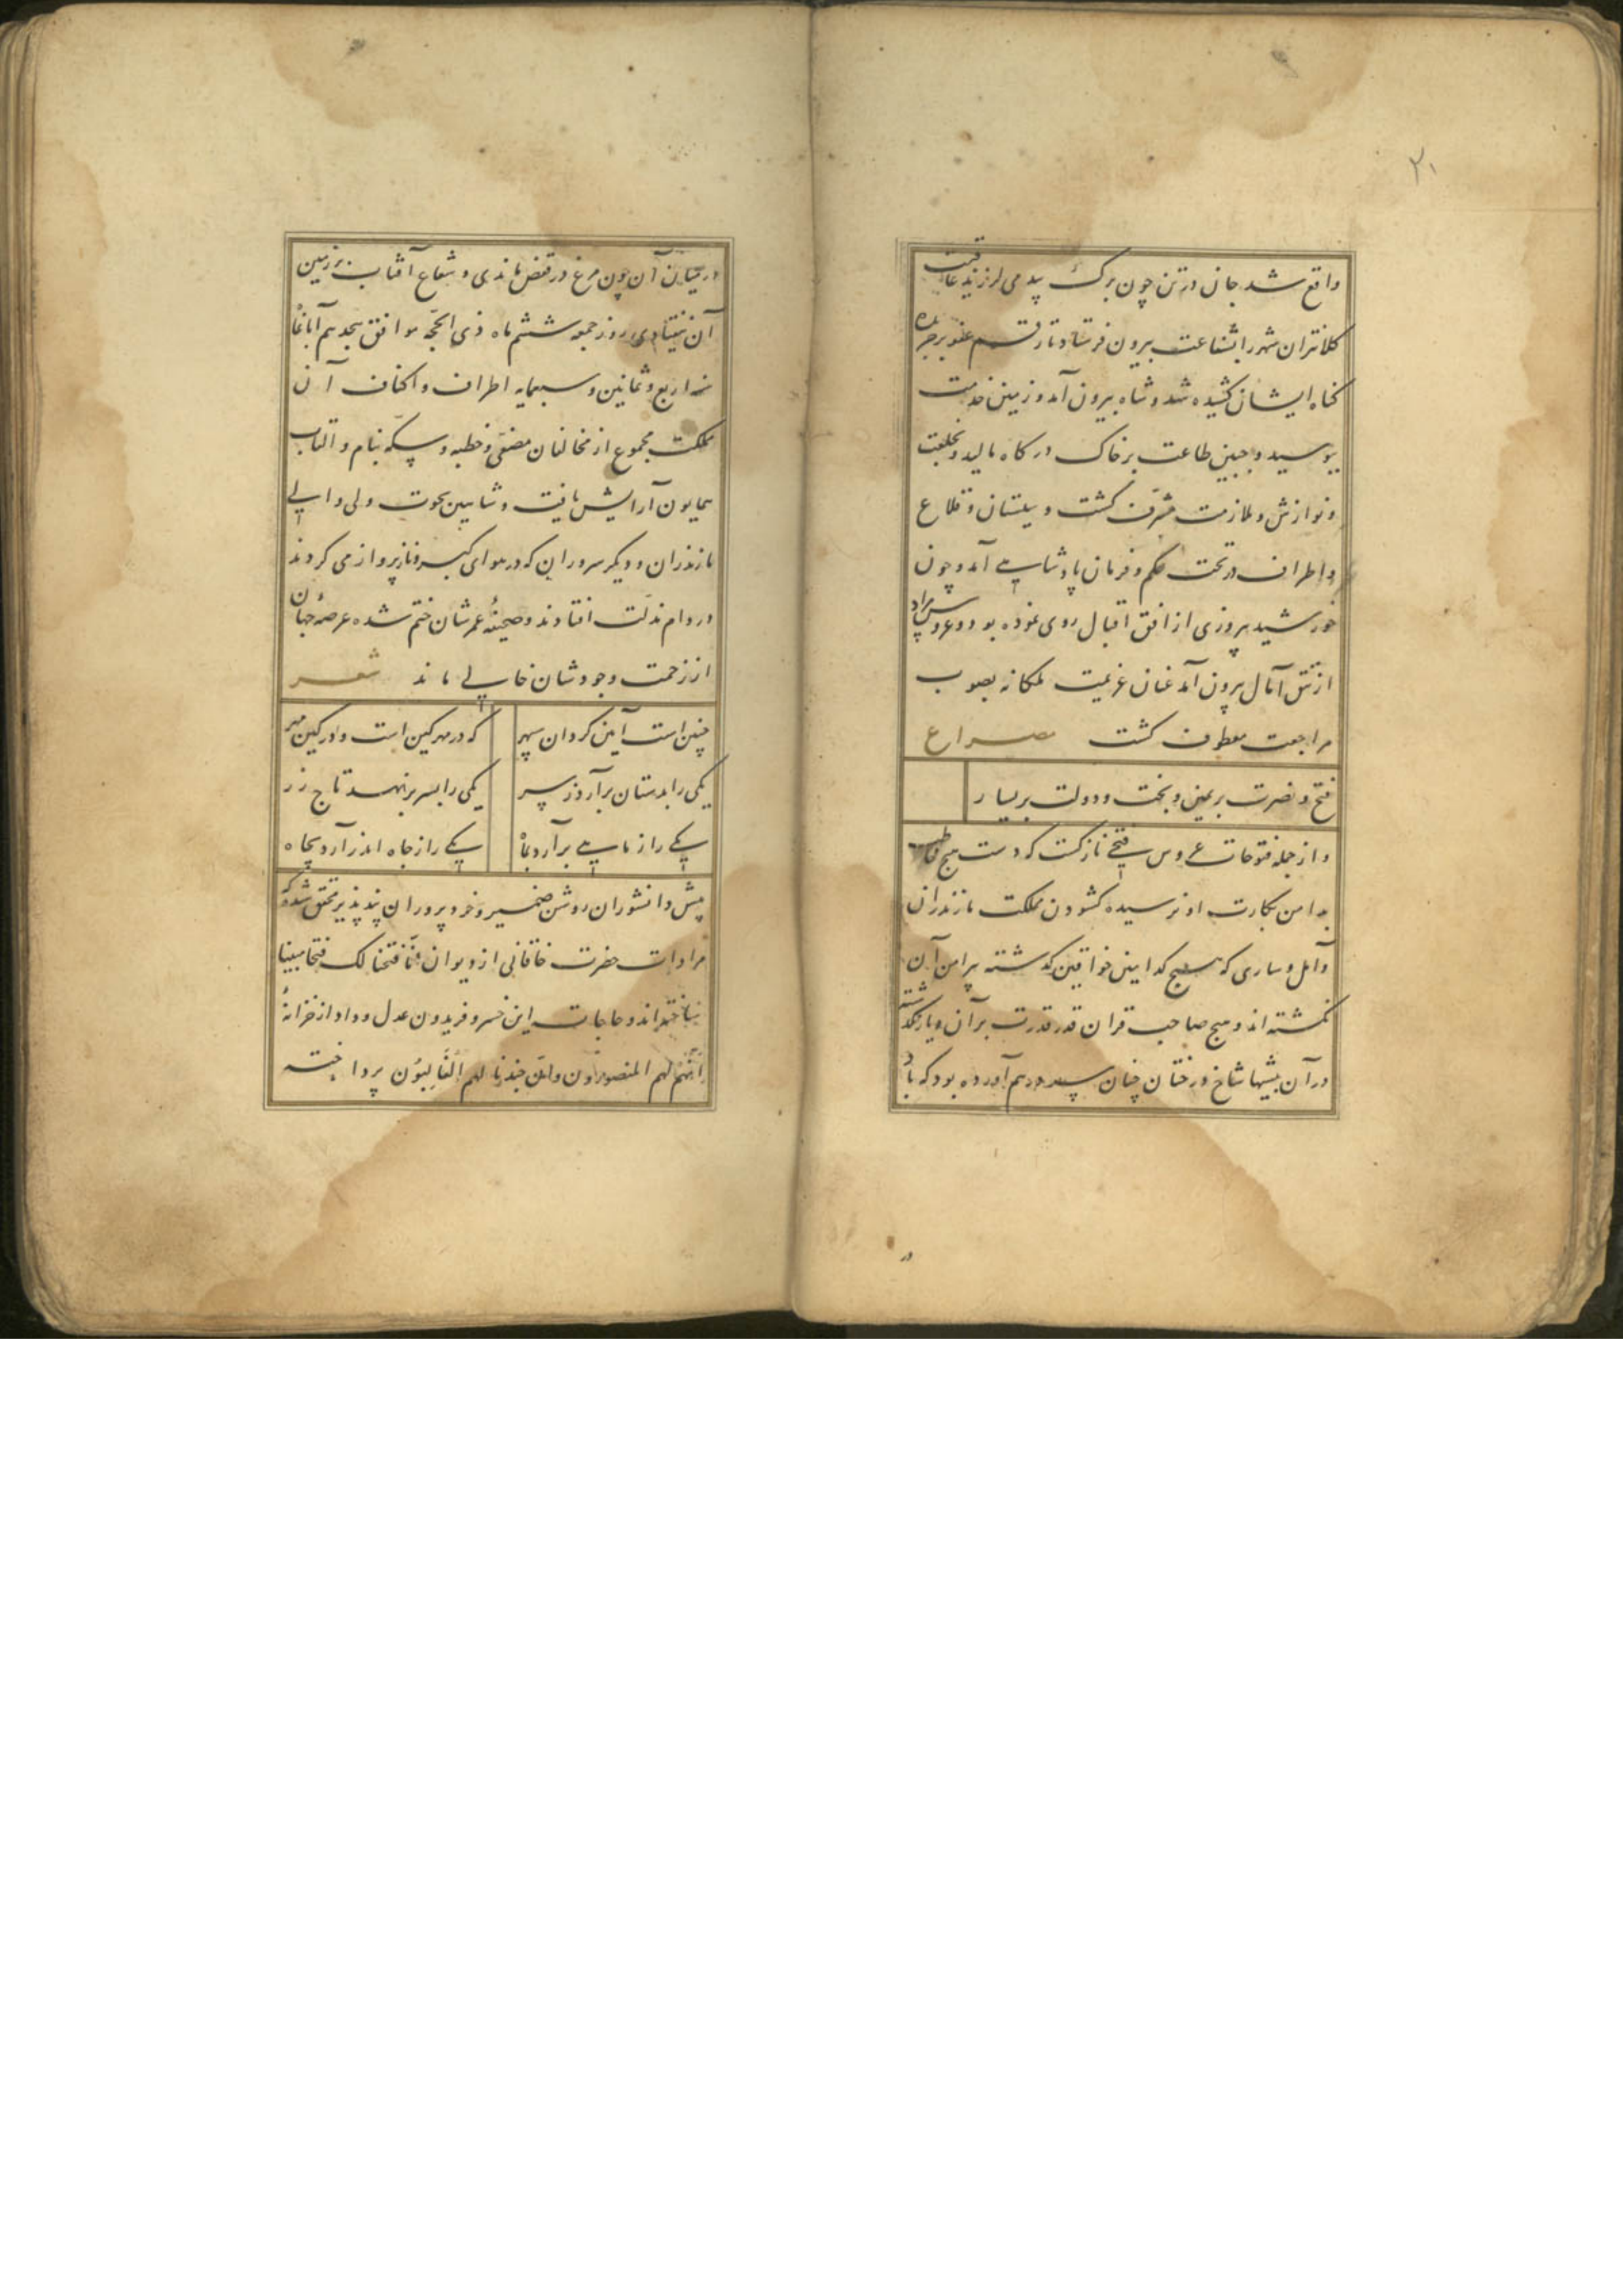 ۲۰
واقع شد جان در تن چون برک بید می لرزید عاقبت
کلانتران شهر را بشفاعت بیرون فرستاد تا رقم عفو بر جریده
کناه ایشان کشیده شد و شاه بیرون آمد و زمین خدمت
ببوسید و جبین طاعت بر خاک درکاه مالید و بخلعت
و نوازش و ملازمت مشرف کشت و سیستان و قلاع
و اطراف در تحت حکم و فرمان پادشاهی آمد و چون
خورشید پیروزی از افق اقبال روی نموده بود و عروس مراد
از تتق آمال بیرون آمد عنان عزیمت ملکانه بصوب
مراجعت معطوف کشت مصراع
فتح و نصرت بر یمین و بخت و دولت بر یسار
و از جمله فتوحات عروس فتحی نازکست که دست هیچ خاطب
بدامن بکارت او نرسیده کشودن مملکت مازندران
و آمل و ساری که هیچ کدام این خواقین کذشته پیرامن آن
نکشته اند و هیچ صاحب قران قدر قدرت بر آن دیار نکذشته
در آن بیشها شاخ درختان چنان سر در هم آورده بود که باد
در
در میان آن چون مرغ در قفص ماندی و شعاع آفتاب بر زمین
آن نیفتادی روز جمعه ششم ماه ذی الحجه موافق هجدهم آبانماه
سنه اربع و ثمانین و سبعمایه اطراف و اکناف آن
مملکت مجموع از مخالفان مصفی و خطبه و سکه بنام و القاب
همایون آرایش یافت و شاهین نخوت ولی والی
مازندران و دیکر سروران که در هوای کبر و ناز پرواز می کردند
در دام مذلت افتادند و صحیفهٔ عمرشان ختم شده عرصهٔ جهان
از زحمت وجودشان خالی ماند شعر
چنین است آیین کردان سپهر که در مهر کین است و در کین مهر
یکی را بدستان برآرد ز سر یکی را بسر بر نهد تاج زر
یکی را ز ماهی برآرد بماه یکی را ز جاه اندر آرد بچاه
پیش دانشوران روشن ضمیر و خرد پروران پند پذیر محقق شد که
مرادات حضرت خاقانی از دیوان انا فتحنا لک فتحا مبینا
ساخته اند و حاجات این خسرو فریدون عدل و داد از خزانهٔ
انهم لهم المنصورون و ان جندنا لهم الغالبون پرداخته